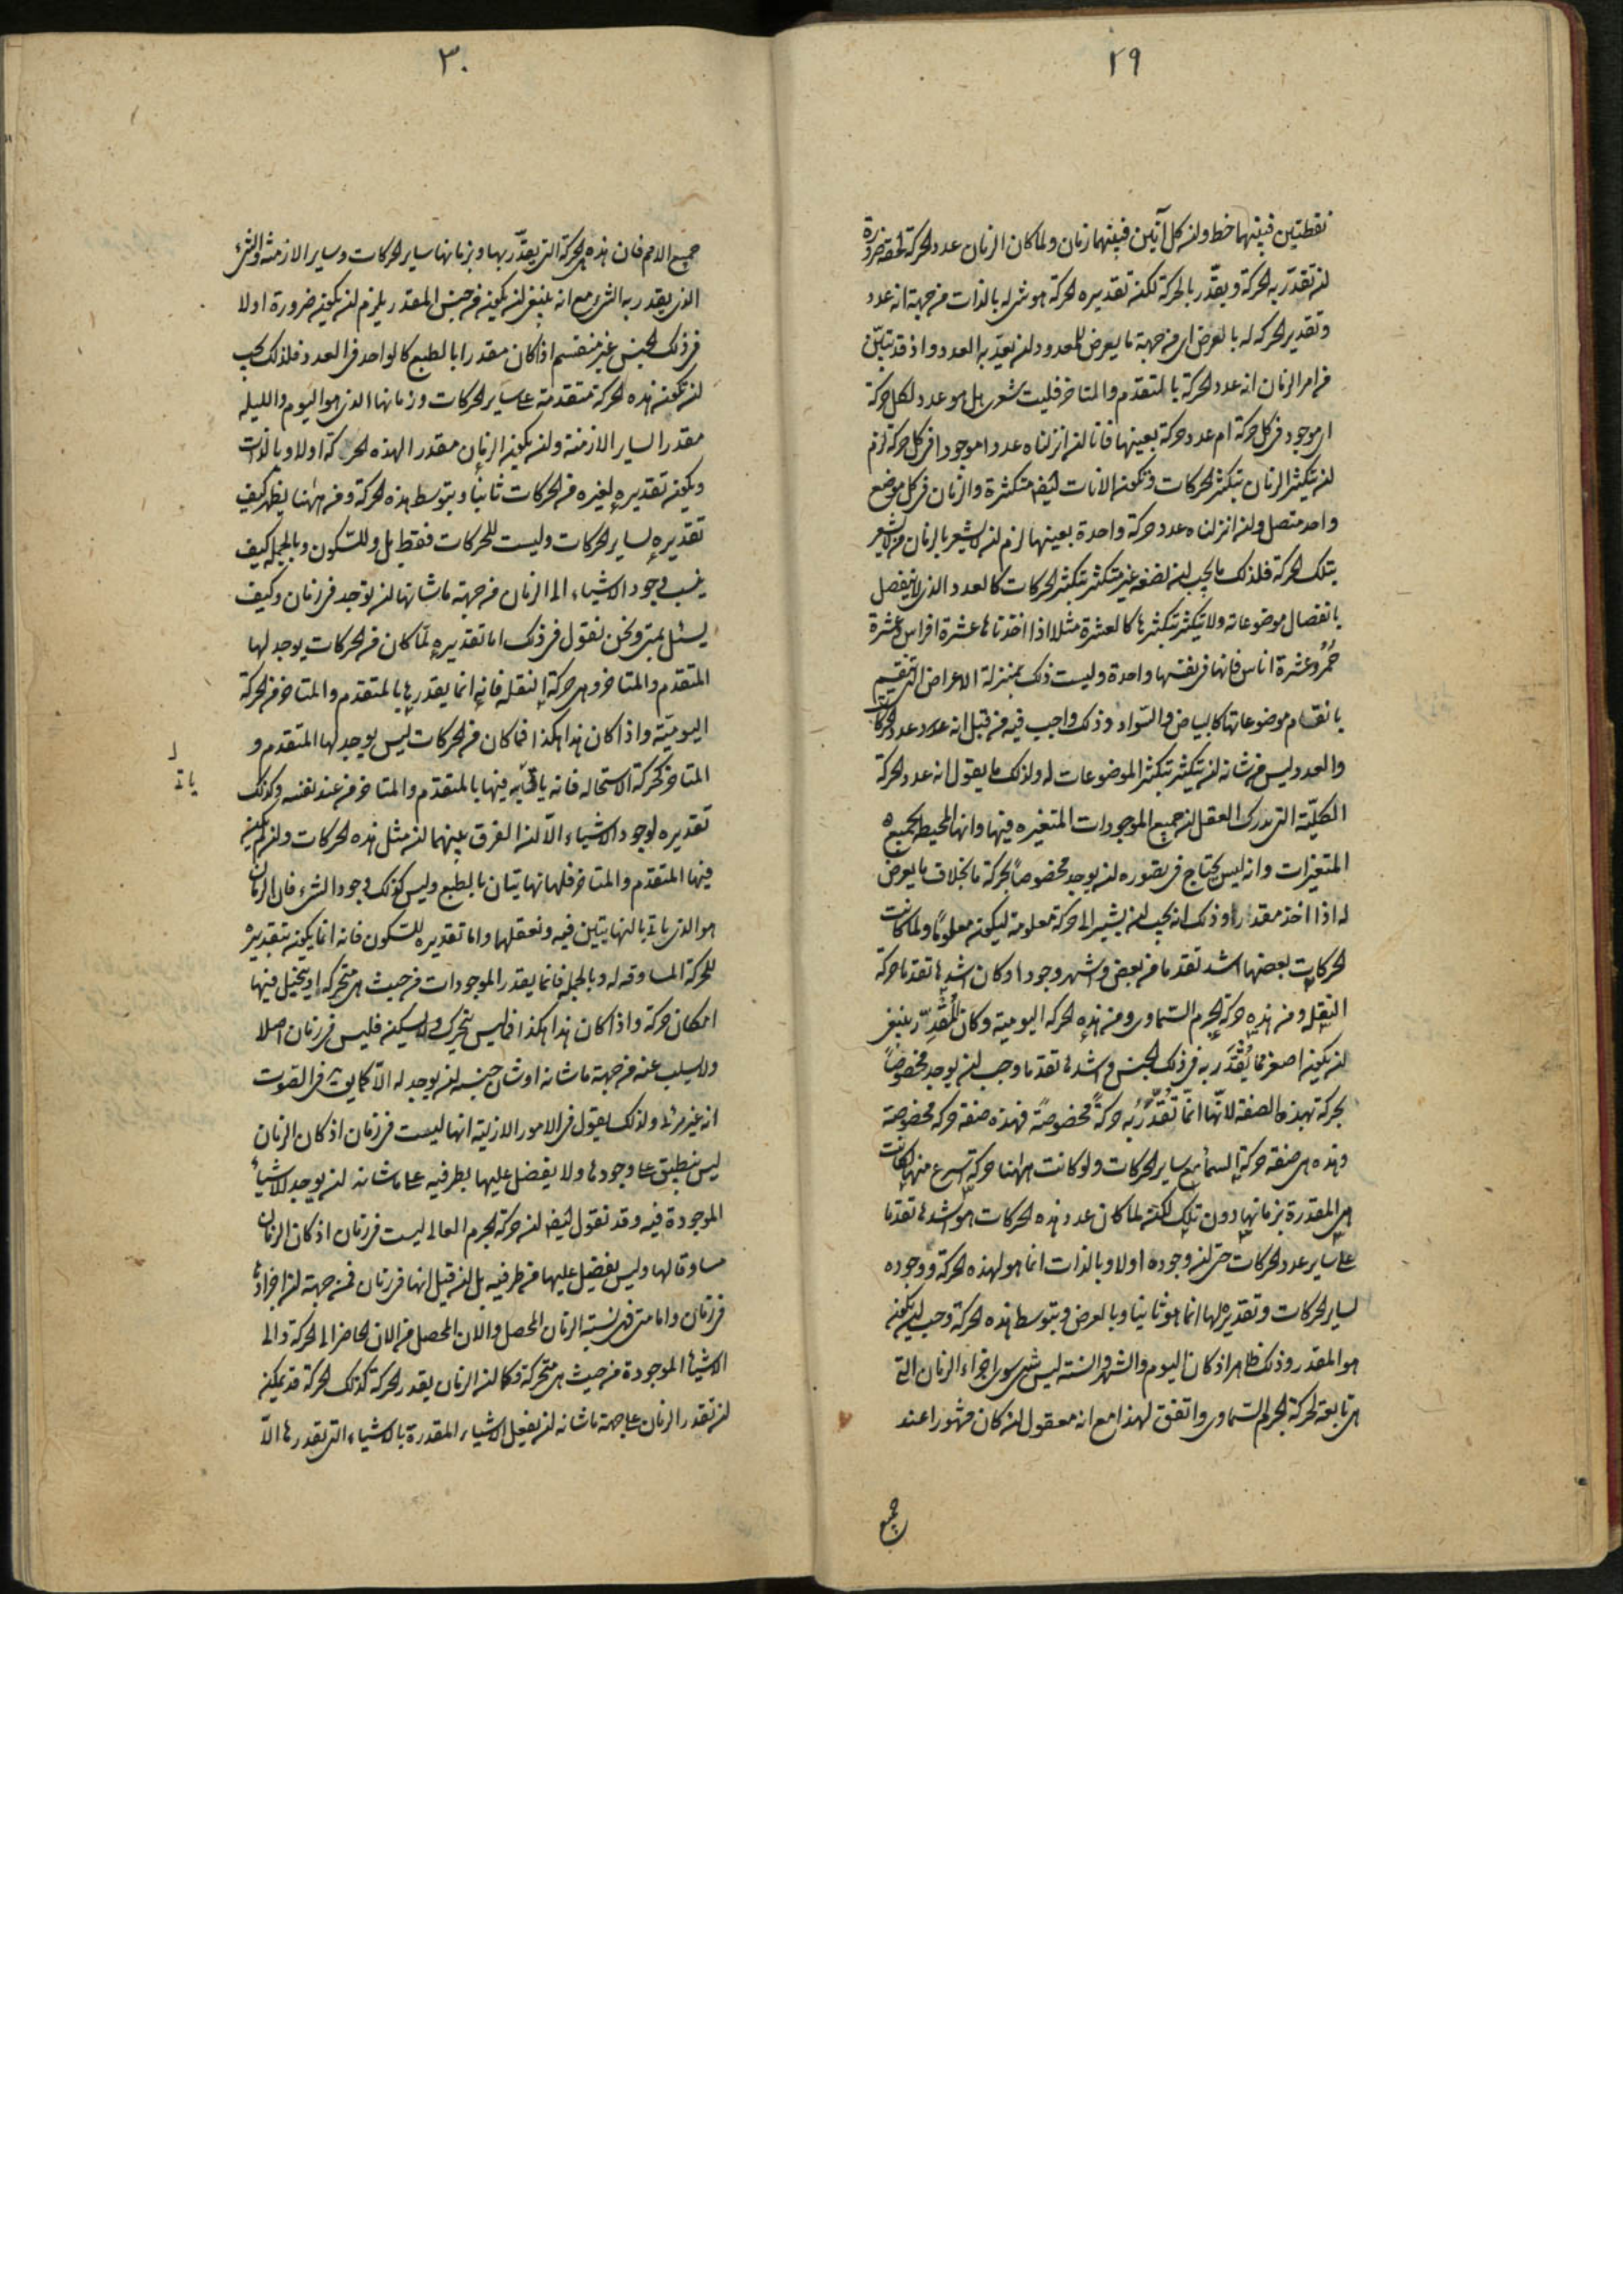 ٢٩
نقطتين فبينهما خط وان كل آنين فبينهما زمان ولما كان الزمان عدد الحركة لحقه ضرورة
ان تقدر به الحركة ويقدر بالحركة لكن تقديره الحركة هو شئ له بالذات من جهة انه عدد
وتقدير الحركه له بالعرض اى من جهة ما يعرض للمعدود ان يعد به العدد واذ قد تبين
من امر الزمان انه عدد الحركة بالمتقدم والمتاخر فليت شعرى هل هو عدد لكل حركة
اى موجود فى كل حركة ام عدد حركة بعينها فانا ان انزلناه عددا موجودا فى كل حركة لزم
ان يتكثر الزمان بتكثر الحركات وتكون الانات ايضا متكثرة والزمان فى كل موضع
واحد متصل وان انزلناه عدد حركة واحدة بعينها لزم ان لا يشعر بالزمان من لا يشعر
بتلك الحركة فلذلك ما يجب ان نضعه غير متكثر بتكثر الحركات كالعدد الذى لا ينفصل
بانفصال موضوعاته ولا يتكثر بتكثرها كالعشرة مثلا اذا اخذناها عشرة افراس وعشرة
حمر وعشرة اناس فانها فى نفسها واحدة وليست ذلك بمنزلة الاعراض التى تنقسم
بانقسام موضوعاتها كالبياض والسواد وذلك واجب فيه من قبل انه عدد عدد الحركات
والعدد ليس من شانه ان يتكثر بتكثر الموضوعات له ولذلك ما يقول انه عدد الحركة
الكلية التى يدرك العقل ان جميع الموجودات المتغيره فيها وانها المحيطة بجميع
المتغيرات وانه ليس يحتاج فى تصوره ان يوجد مخصوصا بحركة ما بخلاف ما يعرض
له اذا اخذ مقدرا وذلك انه يجب ان يشير الى حركة معلومة ليكون معلوما ولما كانت
الحركات بعضها اشد تقدما من بعض واشهر وجودا وكان اشدها تقدما حركة
النقله ومن هذه حركة الجرم السماوى ومن هذه الحركه اليومية وكان المقدر ينبغى
ان يكون اصغر مما يقدر به فى ذلك الجنس واشدها تقدما وجب ان يوجد مخصوصا
بحركة بهذه الصفة لانها انما تقدر به حركة مخصوصة فهذه صفة حركه مخصوصة
وهذه هى صفة حركة السماء مع ساير الحركات ولو كانت هاهنا حركة اسرع منها لكانت
هى المقدرة بزمانها دون تلك لكن لما كان عدد هذه الحركات هو اشدها تقدما
على ساير عدد الحركات حتى ان وجوده اولا وبالذات انما هو لهذه الحركة ووجوده
لساير الحركات وتقديره لها انما هو ثانيا وبالعرض وبتوسط هذه الحركة وجب ان يكون
هو المقدر وذلك ظاهر اذ كان اليوم والشهر والسنة ليس شئ سوى اجزاء الزمان التى
هى تابعة لحركة الجرم السماوى واتفق لهذا مع انه معقول ان كان مشهورا عند
جميع
٣٠
جميع الامم فان هذه هى الحركة التى يقدر بها وبزمانها ساير الحركات وساير الازمنة والشئ
الذى يقدر به الشئ مع انه ينبغى ان يكون من جنس المقدر يلزم ان يكون ضرورة اولا
فى ذلك الجنس غير منقسم اذا كان مقدرا بالطبع كالواحد فى العدد فلذلك يجب
ان تكون هذه الحركة متقدمة على ساير الحركات وزمانها الذى هو اليوم والليله
مقدر الساير الازمنة وان يكون الزمان مقدر الهذه الحركة اولا وبالذات
ويكون تقديره لغيره من الحركات ثانيا وبتوسط هذه الحركة ومن هاهنا يظهر كيف
تقديره لساير الحركات وليست للحركات فقط بل وللسكون وبالجمله كيف
ينسب وجود الاشياء الى الزمان من جهة ما شانها ان توجد فى زمان وكيف
يسئل بمتى ونحن نقول فى ذلك اما تقديره لما كان من الحركات يوجد لها
المتقدم والمتاخر وهى حركة النقله فانه انما يقدرها بالمتقدم والمتاخر من الحركة
اليومية واذا كان هذا هكذا فما كان من الحركات ليس يوجد لها المتقدم و
المتاخر كحركة الاستحاله فانه ياتى فيها بالمتقدم والمتاخر من عند نفسه وكذلك
تقديره لوجود الاشياء الا ان الفرق بينهما ان مثل هذه الحركات وان لم يكن
فيها المتقدم والمتاخر فلها نهايتان بالطبع وليس كذلك وجود الشئ فان الزمان
هو الذى ياتى بالنهايتين فيه ونعقلها واما تقديره للسكون فانه انما يكون بتقديره
للحركة المساوقه له وبالجمله فانما يقدر الموجودات من حيث هى متحركه او يتخيل فيها
امكان حركة واذا كان هذا هكذا فما ليس يتحرك ولا يسكن فليس فى زمان اصلا
ولا يسلب عنه من جهة ما شانه او شان جنسه ان يوجد له الا كما يق فى الصوت
انه غير مرئى ولذلك يقول فى الامور الازلية انها ليست فى زمان اذ كان الزمان
ليس ينطبق على وجودها ولا يفضل عليها بطرفيه على ما شانه ان يوجد الاشياء
الموجودة فيه وقد نقول ايضا ان حركة الجرم العالى ليست فى زمان اذ كان الزمان
مساوقا لها وليس يفضل عليها من طرفيه بل ان قيل انها فى زمان فمن جهة ان اجزاءها
فى زمان واما متى فهى نسبة الزمان المحصل والان المحصل من الان الحاضر الى الحركة والى
الاشياء الموجودة من حيث هى متحركة وكما ان الزمان يقدر الحركة كذلك الحركة قد يمكن
ان تقدر الزمان على جهة ما شانه ان يفعل الاشياء المقدرة بالاشياء التى تقدرها الا